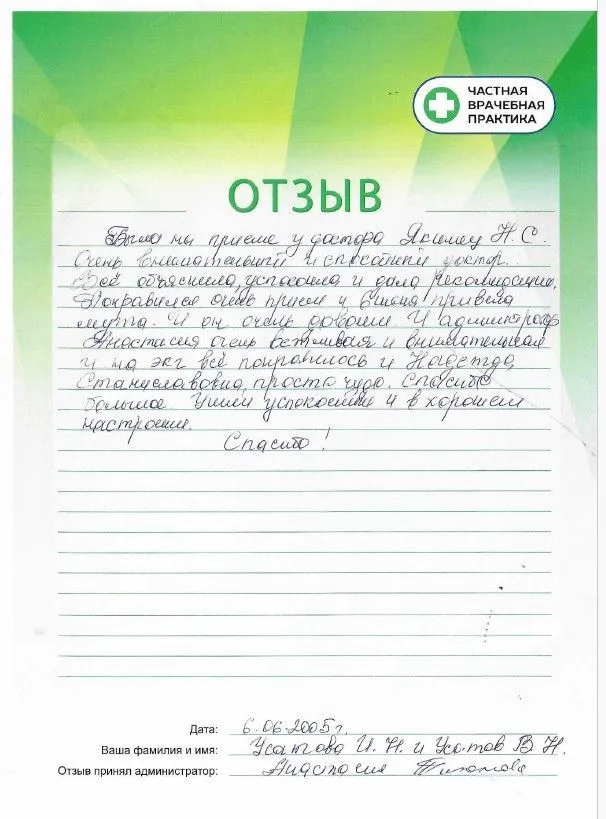 ЧАСТНАЯ
ВРАЧЕБНАЯ
ПРАКТИКА
ОТЗЫВ
Была на приеме у доктора Якимец Н.С.
Очень внимательный и спокойный доктор.
Всё объяснила, успокоила и дала рекомендации.
Понравился очень прием и я привела
мужа. И он очень доволен. И администратор
Анастасия очень вежливая и внимательная
и на экг всё понравилось и Надежда
Станиславовна, просто чудо. Спасибо
большое. Ушли успокоенные и в хорошем
настроении.
Спасибо!
Дата: 6.06.2005г.
Ваша фамилия и имя: Усатова И.Н. и Усатов В.Н.
Отзыв принял администратор: Анастасия